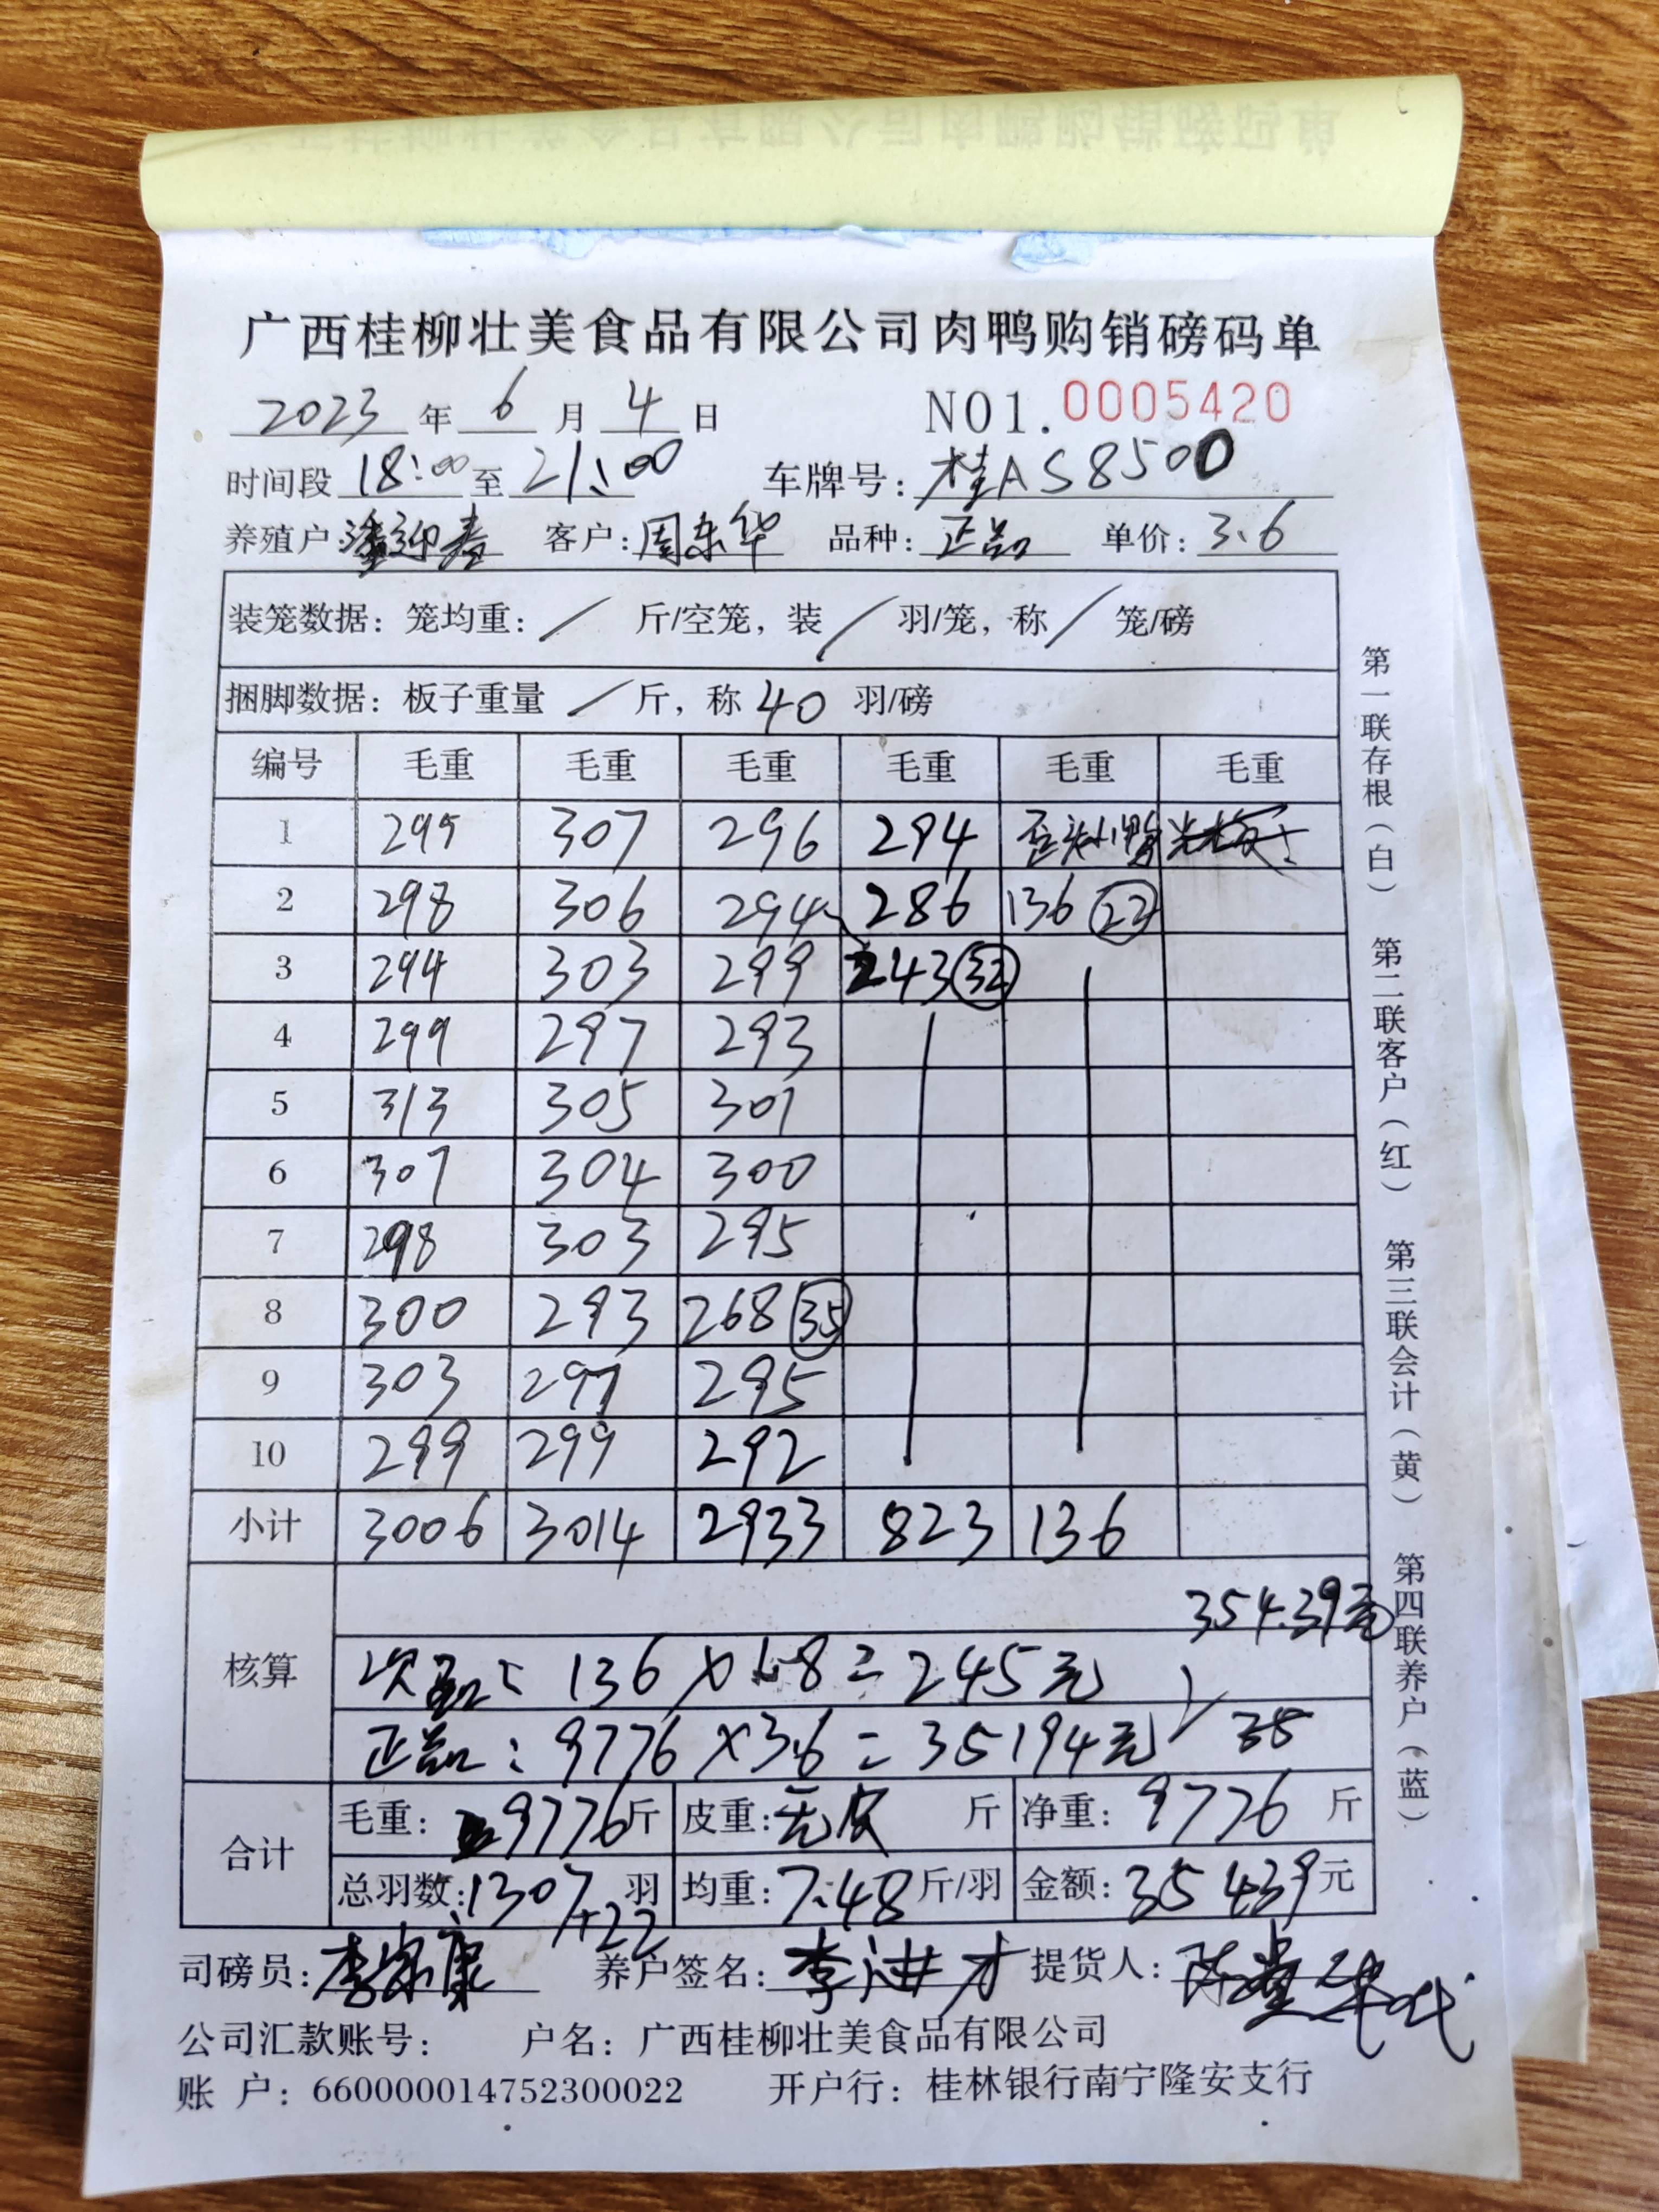 广西桂柳壮美食品有限公司肉鸭购销磅码单
2023 年 6 月 4 日 NO1. 0005420
时间段 18:00 至 21:00 车牌号: 桂AS8500
养殖户: 潘迎春 客户: 周东华 品种: 正品 单价: 3.6
装笼数据: 笼均重: / 斤/空笼, 装 / 羽/笼, 称 / 笼/磅
捆脚数据: 板子重量 / 斤, 称 40 羽/磅
编号 毛重 毛重 毛重 毛重 毛重 毛重
1 295 307 296 294 歪头小鸭
2 298 306 294 286 136 22
3 294 303 299 243 32
4 299 297 293
5 313 305 301
6 307 304 300
7 298 303 295
8 300 293 268 35
9 303 297 295
10 299 299 292
小计 3006 3014 2933 823 136
354.39元
核算 次品: 136 × 1.8 = 245元
正品: 9776 × 3.6 = 35194元 38
合计 毛重: 9776斤 皮重: 无皮 斤 净重: 9776 斤
总羽数: 1307 羽 +22 均重: 7.48 斤/羽 金额: 35439元
司磅员: 李家康 养户签名: 李进才 提货人:
公司汇款账号: 户名: 广西桂柳壮美食品有限公司
账 户: 660000014752300022 开户行: 桂林银行南宁隆安支行
第一联存根(白) 第二联客户(红) 第三联会计(黄) 第四联养户(蓝)